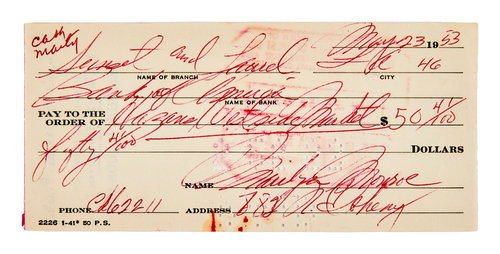 Cash
Marily
May 23 1953
Sunset and Laurel L.A. 46
NAME OF BRANCH CITY
Bank of America
NAME OF BANK
PAY TO THE
ORDER OF Westside Market $ 50 41/100
fifty 41/100 DOLLARS
NAME Marilyn Monroe
PHONE CR62211 ADDRESS 882 N. Doheny
2226 1-41* 50 P.S.